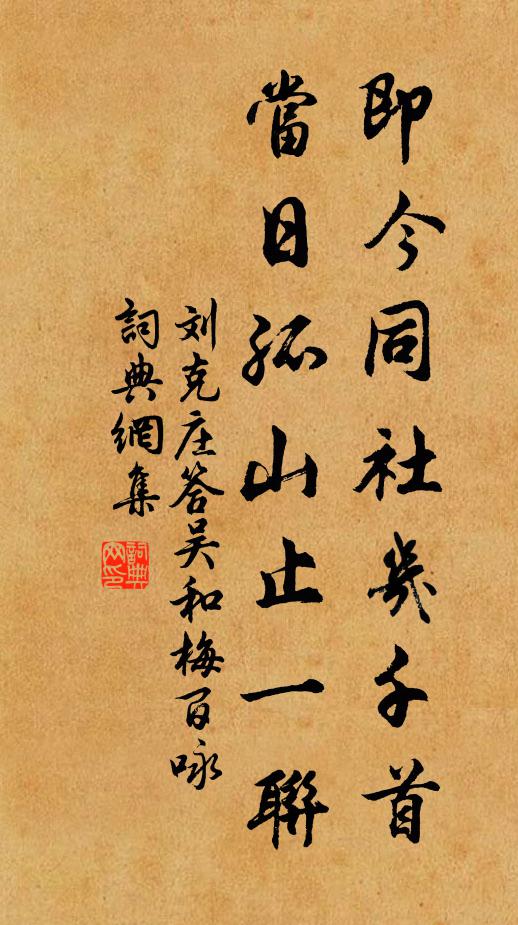 即今同社幾千首
當日孤山止一聯
刘克庄答吴和梅百咏
詞典網集
詞典網印